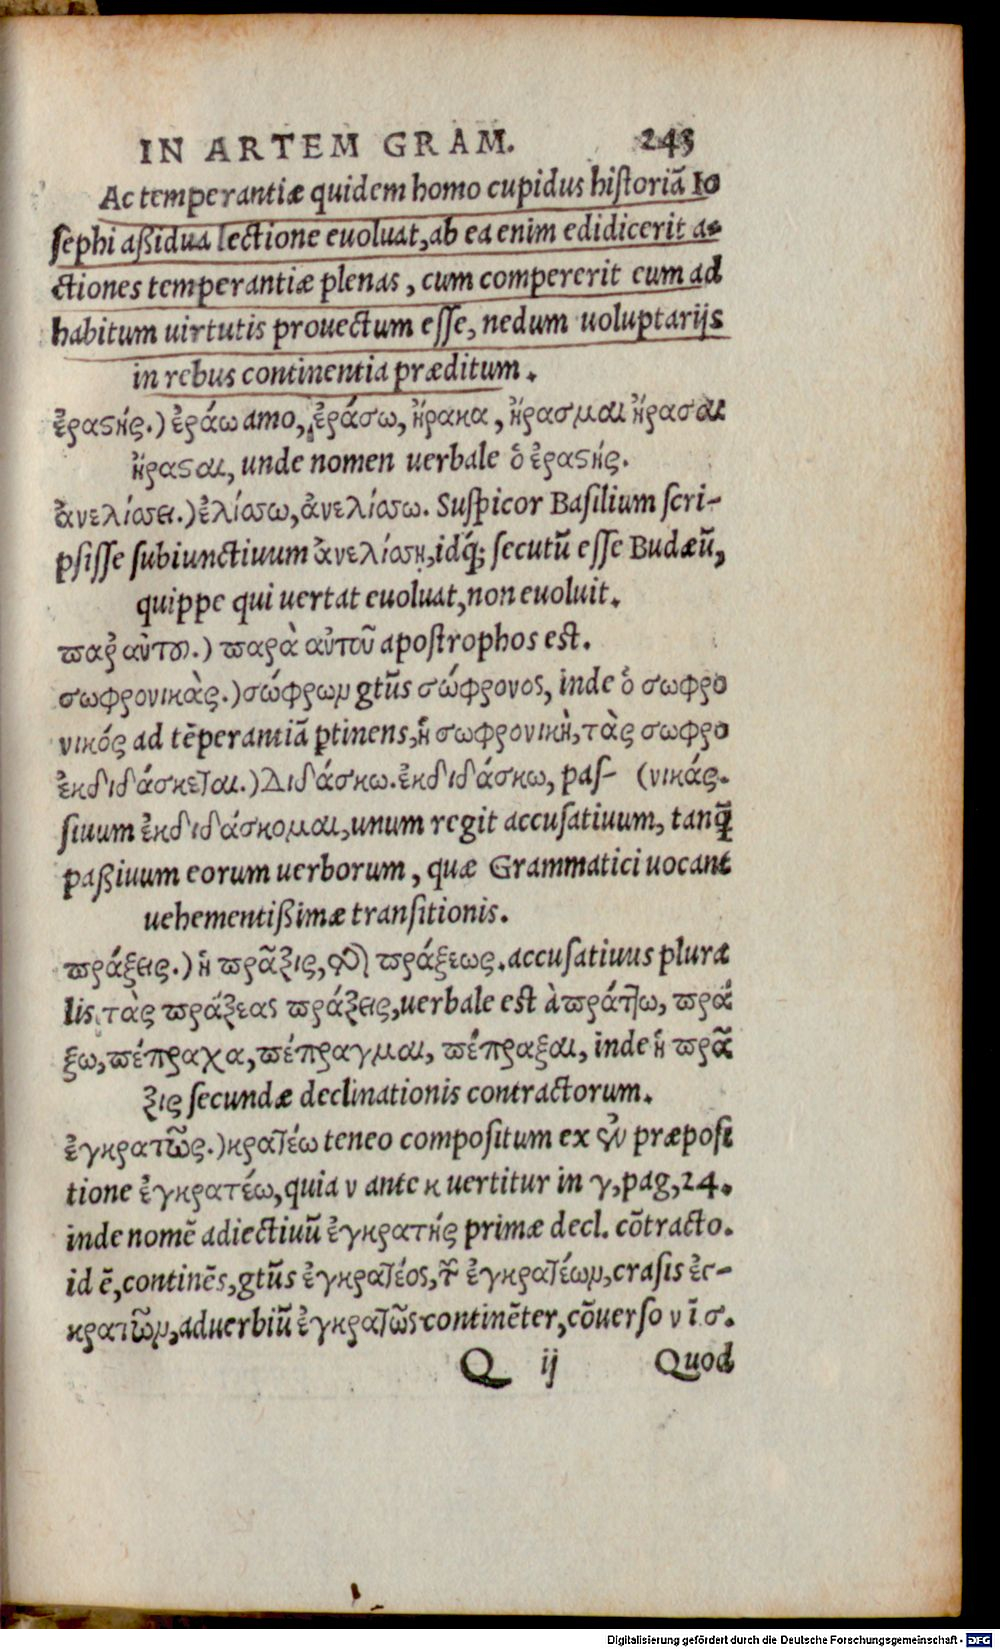 IN ARTEM GRAM. 243
Ac temperantiæ quidem homo cupidus historiã Io
sephi aßidua lectione euoluat, ab ea enim edidicerit a-
ctiones temperantiæ plenas, cum compererit eum ad
habitum uirtutis prouectum esse, nedum uoluptarijs
in rebus continentia præditum.
ἐραςής.) ἐράω amo, ἐράσω, ἤρακα, ἤρασμαι ἤρασαι
ἤραςαι, unde nomen uerbale ὁ ἐραςής.
ἀνελίσσει.) ἑλίσσω, ἀνελίσσω. Suspicor Basilium scri-
psisse subiunctiuum ἀνελίσσῃ, idq́; secutũ esse Budæũ,
quippe qui uertat euoluat, non euoluit.
παρ' αὐτοῦ.) παρὰ αὐτοῦ apostrophos est.
σωφρονικὰς.) σώφρων gtũs σώφρονος, inde ὁ σωφρο
νικός ad tẽperantiã ptinens, ἡ σωφρονικὴ, τὰς σωφρο
ἐκδιδάσκεται.) Διδάσκω. ἐκδιδάσκω, pas- (νικάς.
siuum ἐκδιδάσκομαι, unum regit accusatiuum, tanq̃
paßiuum eorum uerborum, quæ Grammatici uocant
uehementißimæ transitionis.
πράξεις.) ἡ πρᾶξις, τῆς πράξεως. accusatiuus plura
lis τὰς πράξεας πράξεις, uerbale est à πράττω, πρά
ξω, πέπραχα, πέπραγμαι, πέπραξαι, inde ἡ πρᾶ
ξις secundæ declinationis contractorum.
ἐγκρατῶς.) κρατέω teneo compositum ex ἐν præposi
tione ἐγκρατέω, quia ν ante κ uertitur in γ, pag, 24.
inde nomẽ adiectiuũ ἐγκρατής primæ decl. cõtracto.
id ẽ, continẽs, gtũs ἐγκρατέος, τῶν ἐγκρατέων, crasis ἐγ-
κρατῶν, aduerbiũ ἐγκρατῶς continẽter, cõuerso ν ĩ σ.
Q ij Quod
Digitalisierung gefördert durch die Deutsche Forschungsgemeinschaft - DFG